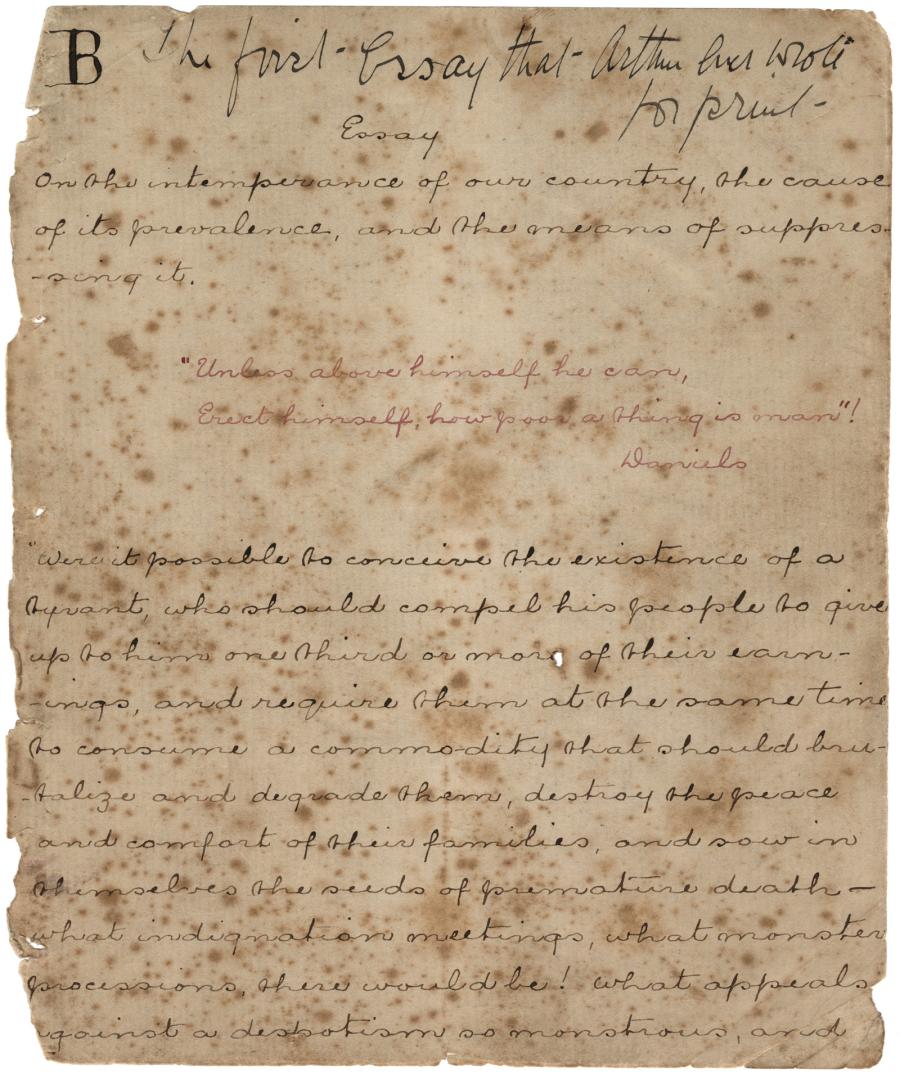 B The first Essay that Arthur ever wrote
for print
Essay
On the intemperance of our country, the cause
of its prevalence, and the means of suppres-
-sing it.
"Unless above himself he can,
Erect himself, how poor a thing is man"!
Daniels
"Were it possible to conceive the existence of a
tyrant, who should compel his people to give
up to him one third or more of their earn-
-ings, and require them at the same time
to consume a commodity that should bru-
-talize and degrade them, destroy the peace
and comfort of their families, and sow in
themselves the seeds of premature death—
what indignation meetings, what monster
processions, there would be! what appeals
against a despotism so monstrous, and